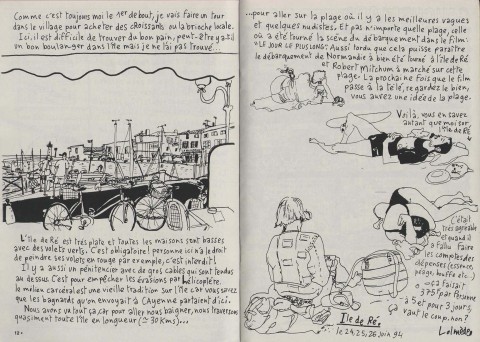 Comme c'est toujours moi le 1er debout, je vais faire un tour
dans le village pour acheter des croissants ou la brioche locale.
Ici, il est difficile de trouver du bon pain, peut-être y a-t-il
un bon boulanger dans l'île mais je ne l'ai pas trouvé...
L'Ile de Ré est très plate et toutes les maisons sont basses
avec des volets verts. C'est obligatoire! personne ici n'a le droit
de peindre ses volets en rouge par exemple, c'est interdit!
Il y a aussi un pénitencier avec de gros cables qui sont tendus
au dessus. C'est pour empêcher les évasions par hélicoptère.
le milieu carcéral est une vieille tradition sur l'île car vous savez
que les bagnards qu'on envoyait à Cayenne partaient d'ici.
Nous avons vu tout ça, car pour aller nous baigner, nous traversons
quasiment toute l'île en longueur (≃ 30 Kms)...
...pour aller sur la plage où il y a les meilleures vagues
et quelques nudistes. Et pas n'importe quelle plage, celle
où a été tourné la scène du débarquement dans le film:
"LE JOUR LE PLUS LONG". Aussi tordu que cela puisse paraître
le débarquement de Normandie a bien été tourné à l'île de Ré
et Robert Mitchum a marché sur cette
plage. La prochaine fois que le film
passe à la télé, regardez le bien,
vous aurez une idée de la plage.
Voilà, vous en savez
autant que moi sur
l'île de Ré
C'était
très agréable
et quand il
a fallu faire
les comptes des
dépenses (essence,
péage, bouffe etc...
ça faisait
375F par personne
à 5 et pour 3 jours,
ça vaut le coup, non?
Ile de Ré,
le 24, 25, 26 juin 94